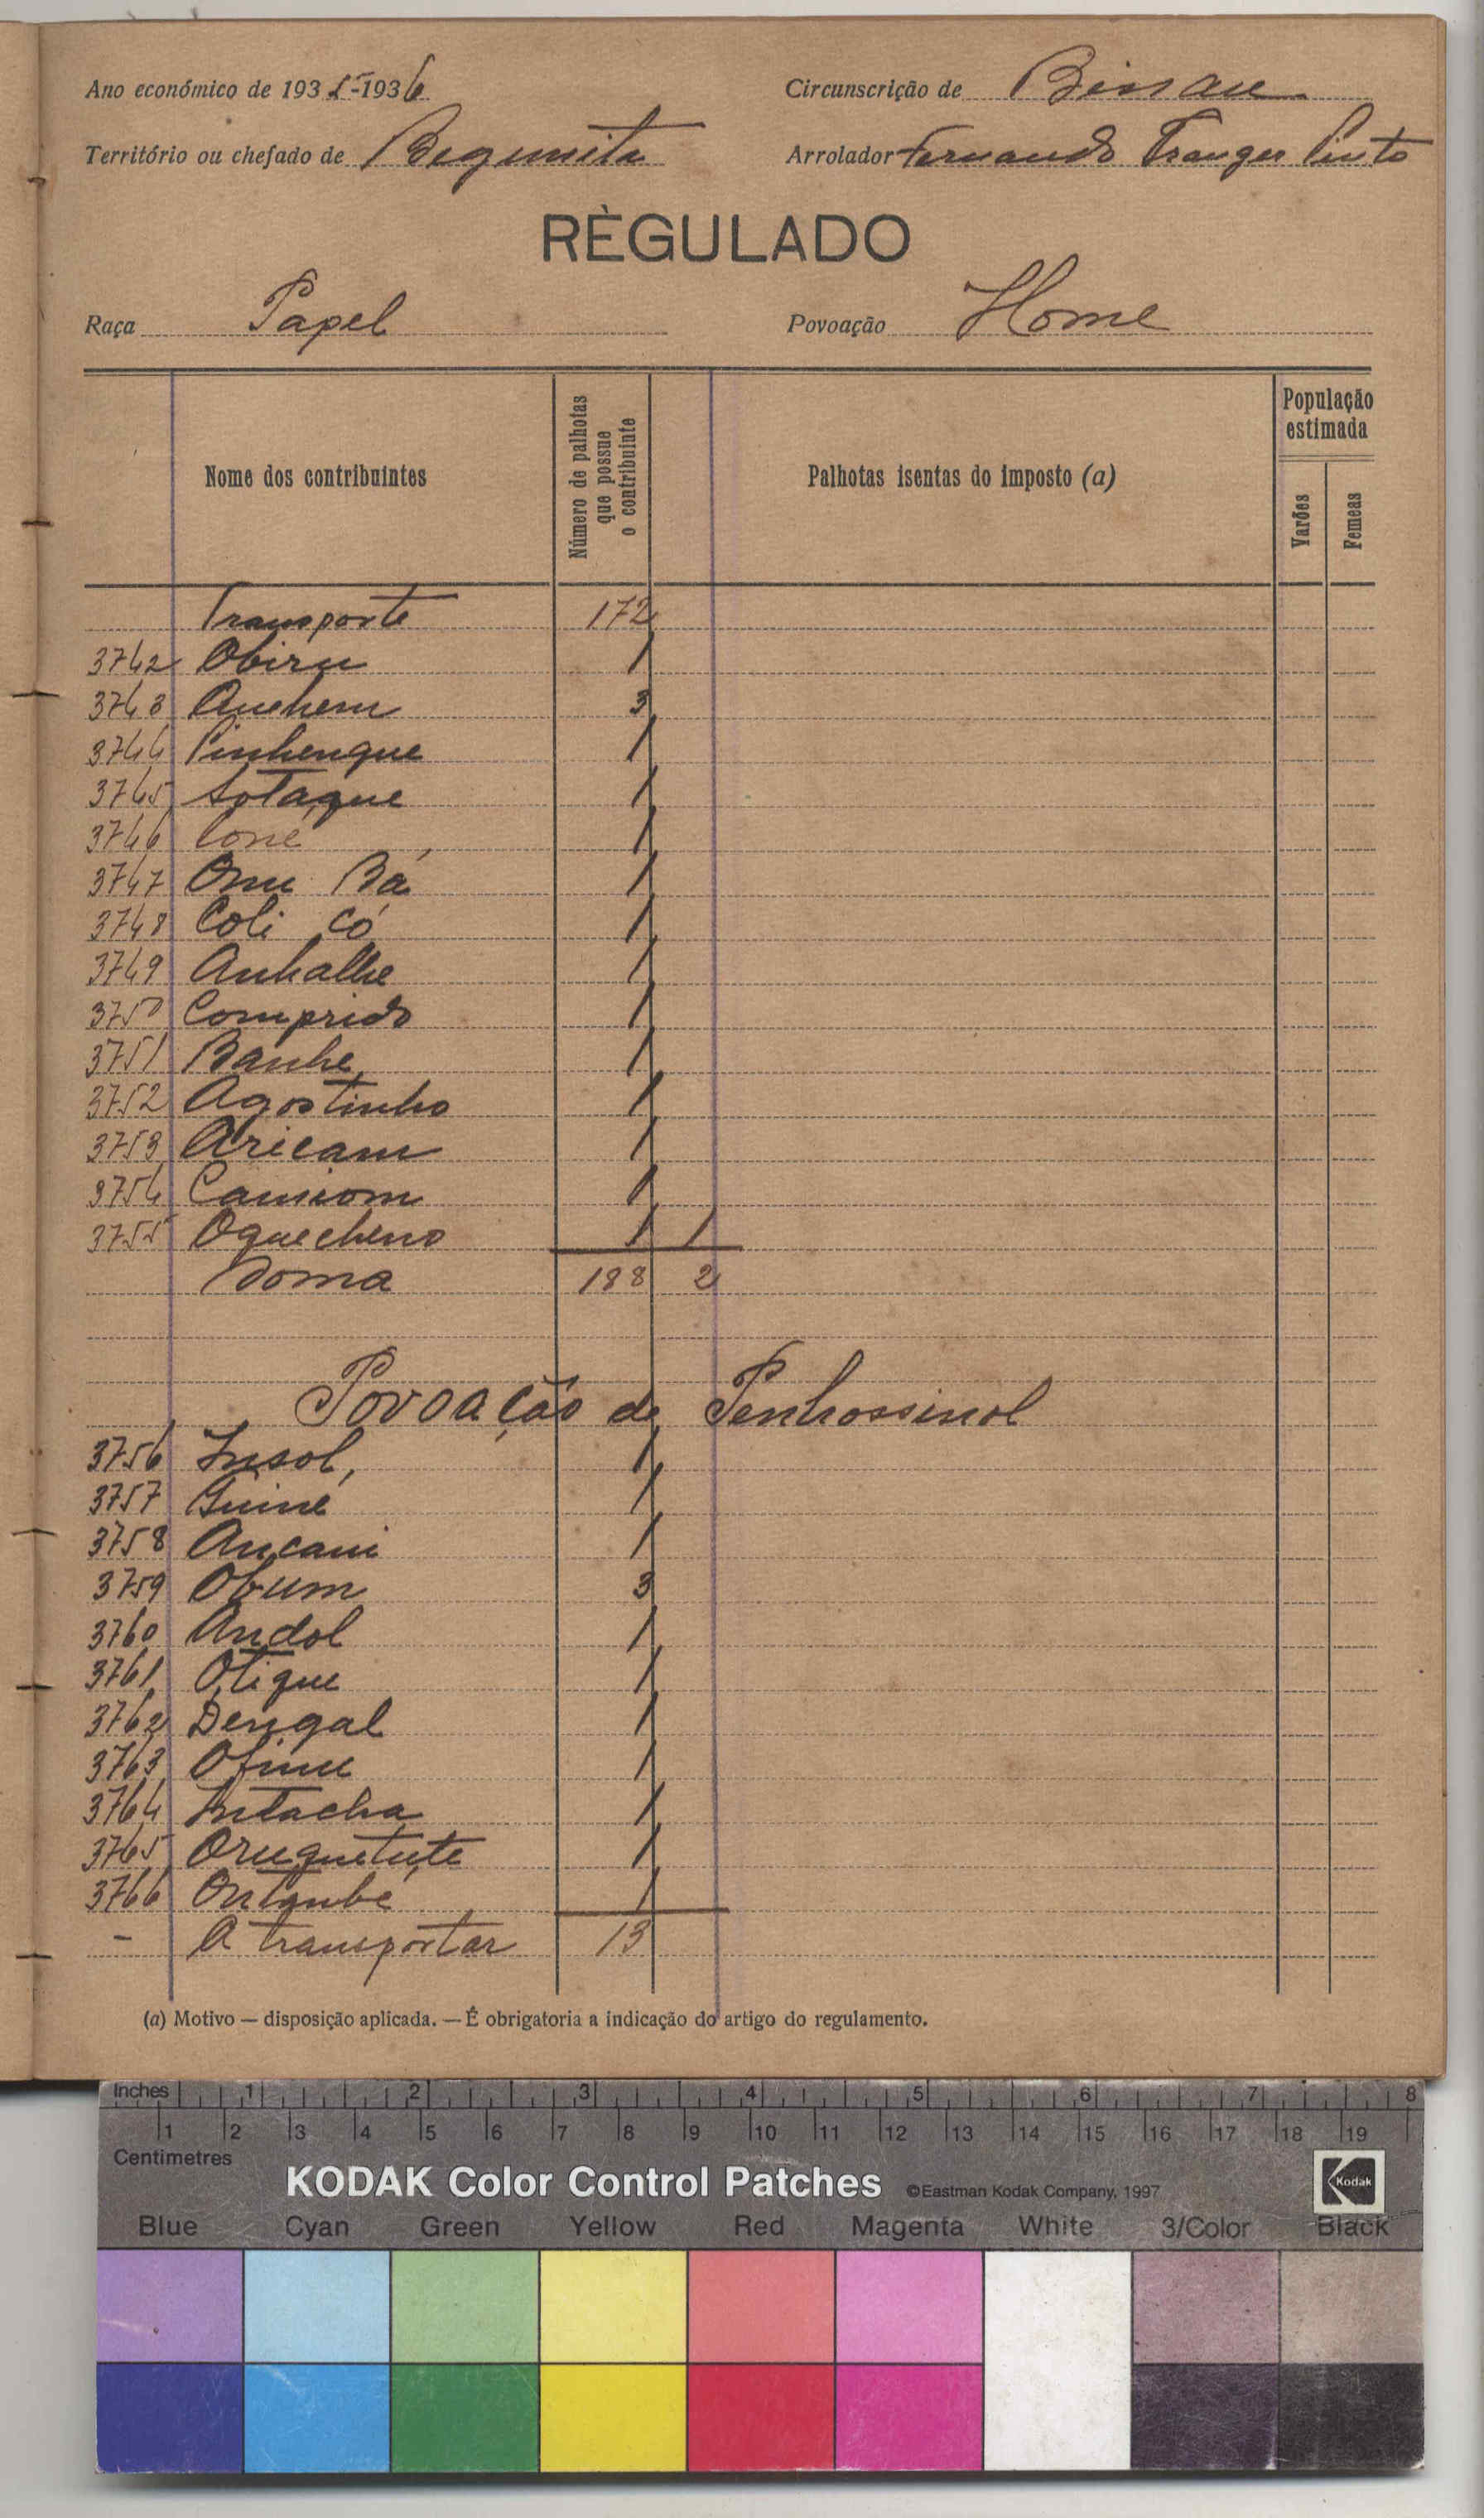 Ano económico de 1935-1936 Circunscrição de Bissau
Território ou chefado de Bequmita Arrolador Fernando Pinto
RÈGULADO
Raça Papel Povoação Home
Nome dos contribuintes
Número de palhotas que possue o contribuinte
Palhotas isentas do imposto (a)
População estimada
Varões Femeas
Transporte 172
3742 Obiru 1
3743 Auehem 3
3744 Pinhenque 1
3745 Sotaque 1
3746 Coné 1
3747 Onu Bá 1
3748 Coli Có 1
3749 Anhalhe 1
3750 Comprido 1
3751 Banhe 1
3752 Agostinho 1
3753 Aricam 1
3754 Camiom 1
3755 Oquecheno 1 1
Soma 188 2
Povoação de Penhossinol
3756 Insol, 1
3757 Guiné 1
3758 Ancani 1
3759 Obum 3
3760 Andol 1
3761 Otique 1
3762 Dengal 1
3763 Ofinu 1
3764 Intacha 1
3765 Oruquetute 1
3766 Ontambé 1
- A transportar 13
(a) Motivo — disposição aplicada. — É obrigatoria a indicação do artigo do regulamento.
Inches 1 2 3 4 5 6 7 8
1 2 3 4 5 6 7 8 9 10 11 12 13 14 15 16 17 18 19
Centimetres
KODAK Color Control Patches ©Eastman Kodak Company, 1997 Kodak
Blue Cyan Green Yellow Red Magenta White 3/Color Black